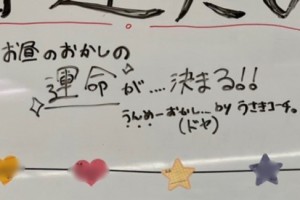 お昼のおかしの
運命が....決まる!!
うんめーおかし... by うさきコーチ。
(ドヤ)